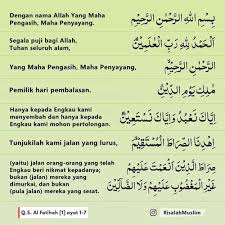 Dengan nama Allah Yang Maha
Pengasih, Maha Penyayang.
بِسْمِ اللّٰهِ الرَّحْمٰنِ الرَّحِيْمِ
Segala puji bagi Allah,
Tuhan seluruh alam,
اَلْحَمْدُ لِلّٰهِ رَبِّ الْعٰلَمِيْنَۙ
Yang Maha Pengasih, Maha Penyayang,
الرَّحْمٰنِ الرَّحِيْمِۙ
Pemilik hari pembalasan.
مٰلِكِ يَوْمِ الدِّيْنِۗ
Hanya kepada Engkau kami
menyembah dan hanya kepada
Engkau kami mohon pertolongan.
اِيَّاكَ نَعْبُدُ وَاِيَّاكَ نَسْتَعِيْنُۗ
Tunjukilah kami jalan yang lurus,
اِهْدِنَا الصِّرَاطَ الْمُسْتَقِيْمَۙ
(yaitu) jalan orang-orang yang telah
Engkau beri nikmat kepadanya;
bukan (jalan) mereka yang
dimurkai, dan bukan
(pula jalan) mereka yang sesat.
صِرَاطَ الَّذِيْنَ اَنْعَمْتَ عَلَيْهِمْ
غَيْرِ الْمَغْضُوْبِ عَلَيْهِمْ وَلَا الضَّاۤلِّيْنَ
Q.S. Al Fatihah [1] ayat 1-7
RisalahMuslim